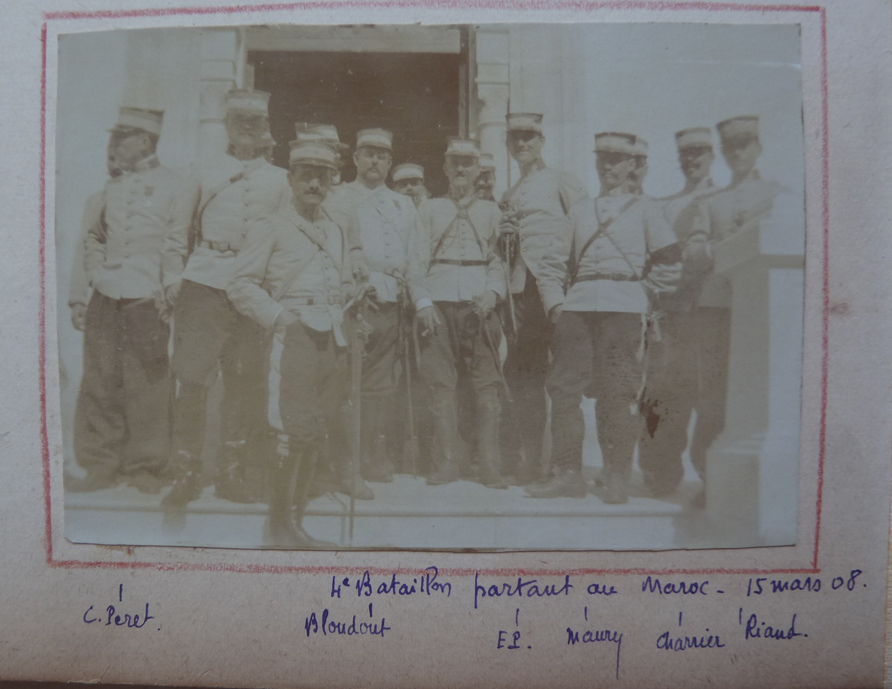 4e Bataillon partant au Maroc - 15 mars 08.
C. Péret. Bloudout E.P. Maury Charrier Riand.